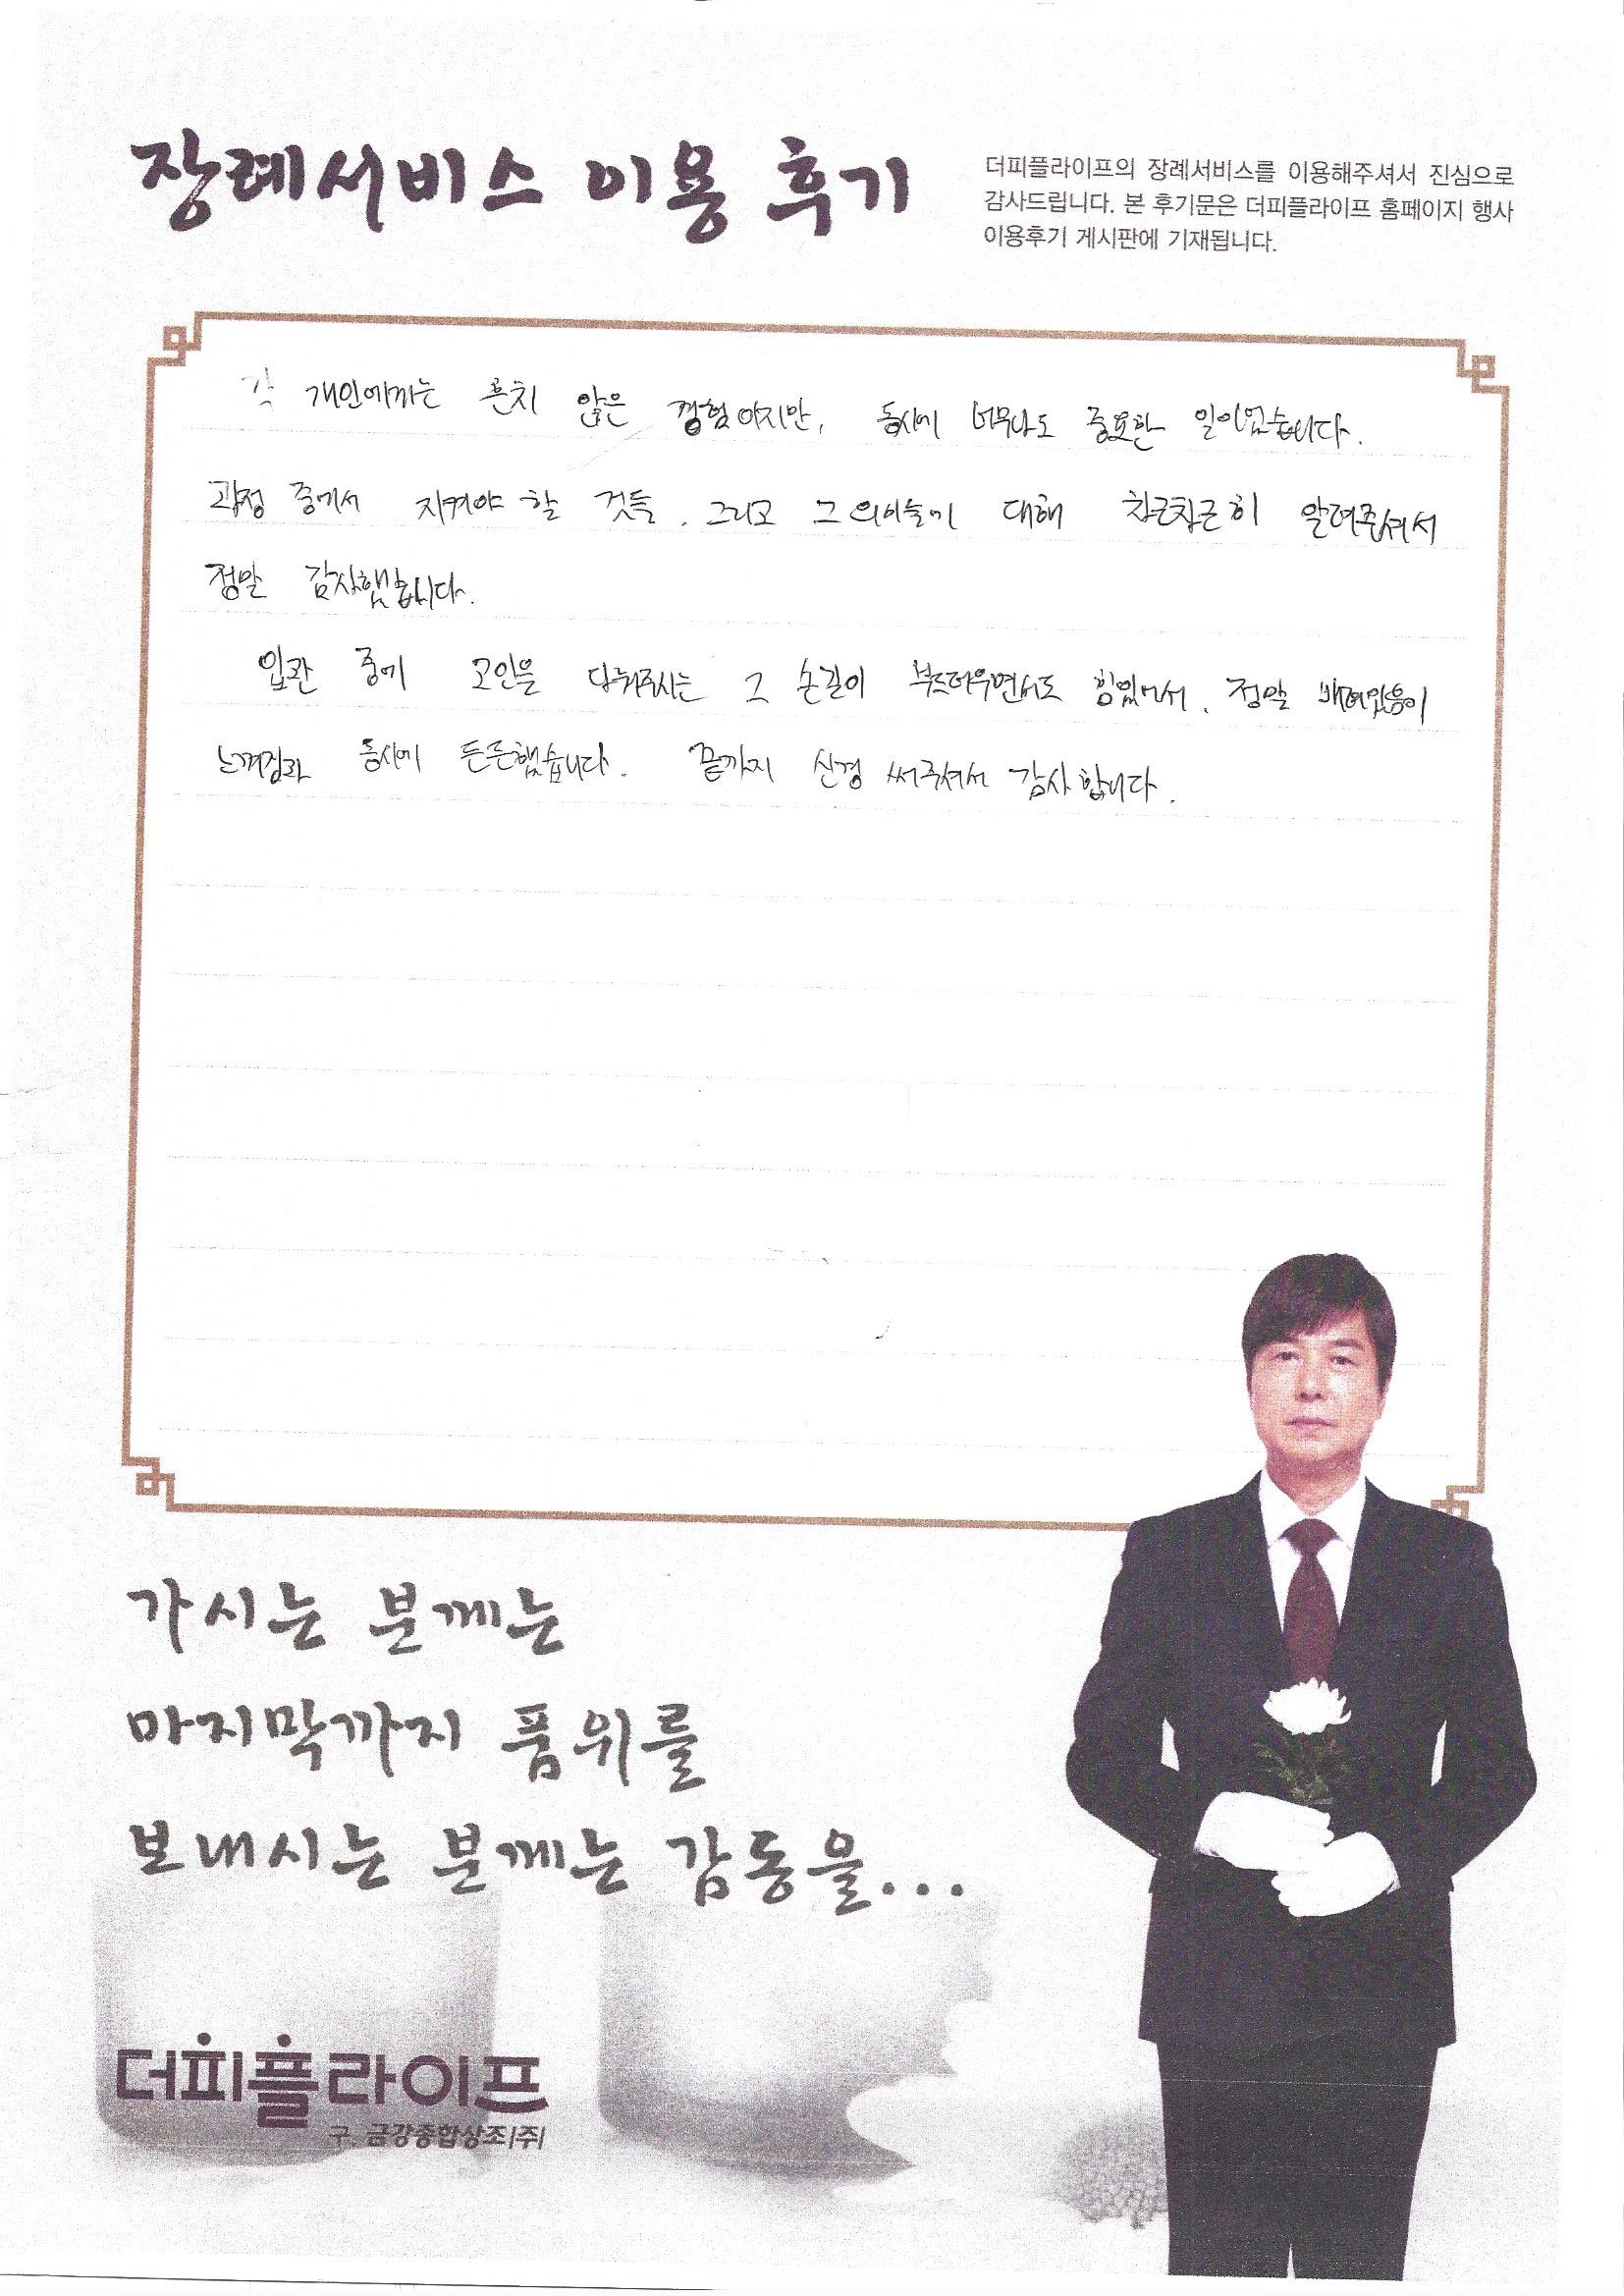 장례서비스 이용 후기
더피플라이프의 장례서비스를 이용해주셔서 진심으로
감사드립니다. 본 후기문은 더피플라이프 홈페이지 행사
이용후기 게시판에 기재됩니다.
각 개인에게는 흔치 않은 경험이지만, 동시에 너무나도 중요한 일이었습니다.
과정 중에서 지켜야 할 것들, 그리고 그 의미들에 대해 차근차근히 알려주셔서
정말 감사했습니다.
입관 중에 고인을 다뤄주시는 그 손길이 부드러우면서도 힘있어서, 정말 배려있음이
느껴짐과 동시에 든든했습니다. 끝까지 신경 써주셔서 감사합니다.
가시는 분께는
마지막까지 품위를
보내시는 분께는 감동을...
더피플라이프
구. 금강종합상조(주)